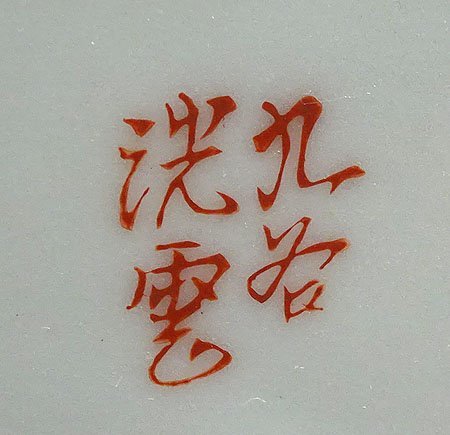 九谷
洸雲